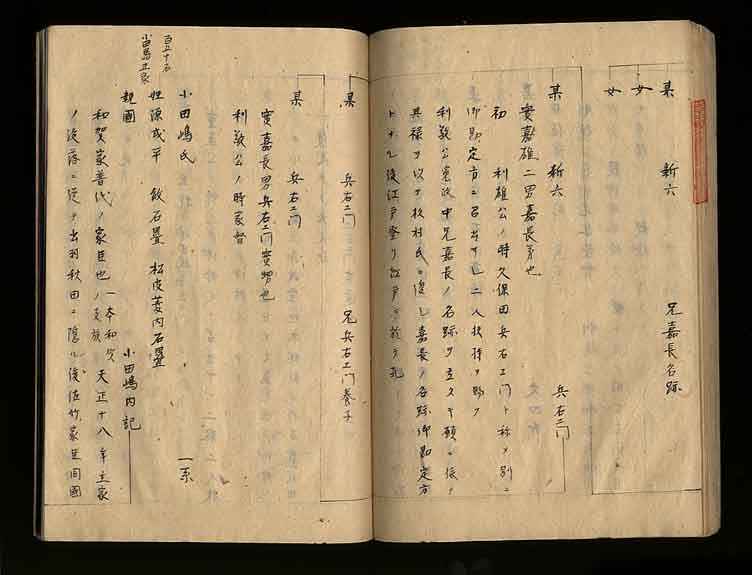 某 新六 兄嘉長名跡
女
女
某 新六 兵右エ門
実嘉雄二男嘉長弟也
初 利雄公ノ時久保田兵右エ門ト称メ別ニ
御勘定方ニ召出サレ二人扶持ヲ賜フ
利敬公寛政中兄嘉長ノ名跡ヲ立タキ願ニ依テ
其禄ヲ以テ 村氏ニ復シ嘉長ノ名跡御勘定方
トナル後江戸登リ江戸ニ於テ死
某 兵右エ門 兄兵右エ門養子
某 兵右エ門
実嘉長男兵右エ門実甥也
利敬公ノ時家督
百五十石
小田嶋正家
小田嶋氏 一系
姓源或平 紋石畳 松皮菱内石畳
親国 小田嶋内記
和賀家普代ノ家臣也 一本和賀ノ支族 天正十八年主家
ノ没落ニ従テ出羽秋田ニ隠ル後佐竹家臣同国